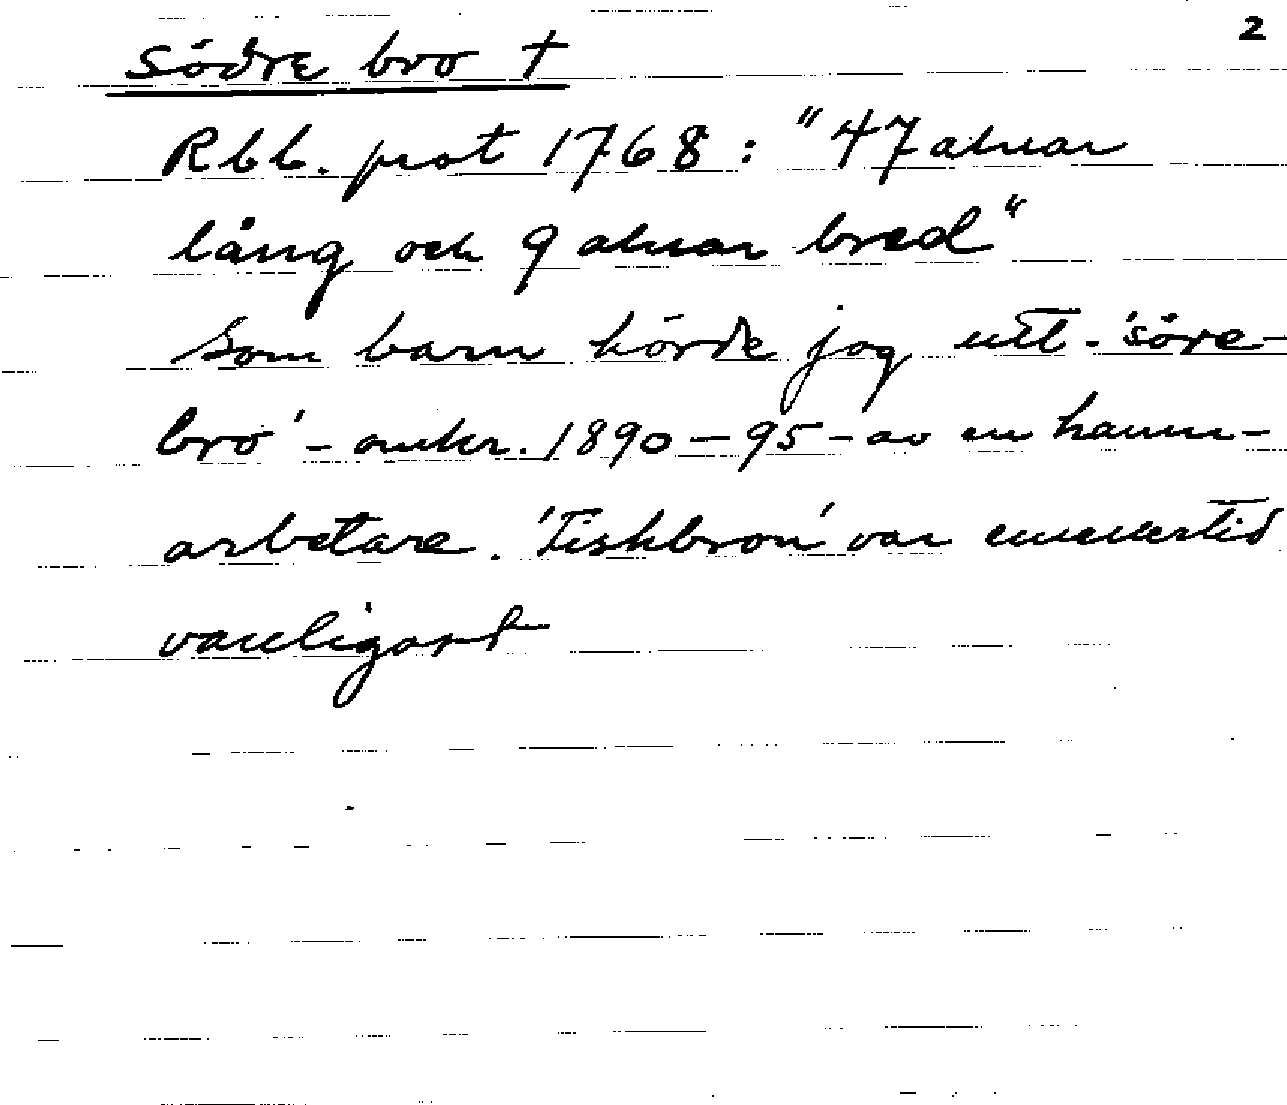 2
Södre bro †
Rbb. prot 1768: "47 alnar
lång och 9 alnar bred"
Som barn hörde jag utt. 'söre-
bro' - omkr. 1890-95 - av en hamn-
arbetare. 'Fiskbron' var emellertid
vanligast